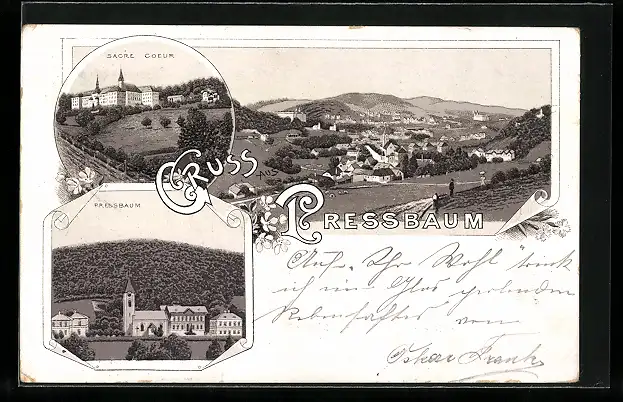 SACRÉ COEUR
GRUSS
AUS
PRESSBAUM
PRESSBAUM
Auf "Ihr Wohl" trink
ich im Glas
Rebensaftes von
Oskar Frank